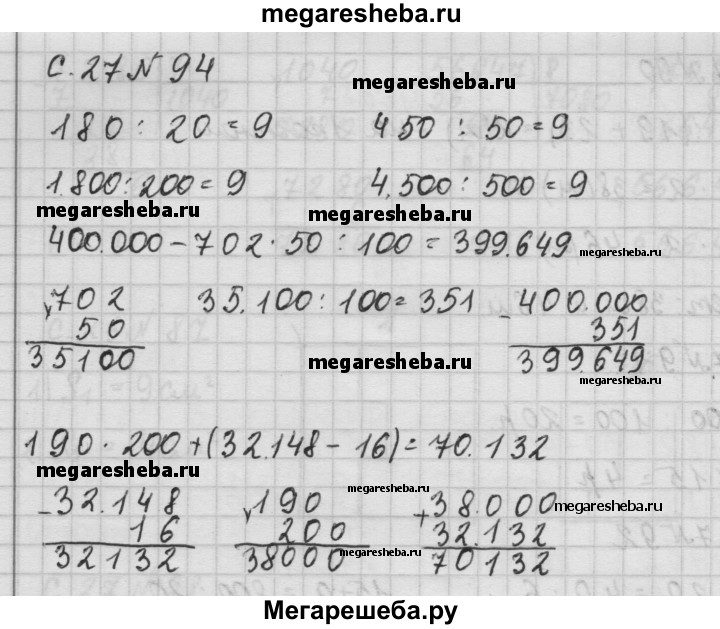 megaresheba.ru
с. 27 № 94
megaresheba.ru
180 : 20 = 9 450 : 50 = 9
1.800 : 200 = 9 4.500 : 500 = 9
megaresheba.ru megaresheba.ru
400.000 – 702 · 50 : 100 = 399.649
megaresheba.ru
×702 35.100 : 100 = 351 –400.000
50 351
35100 399.649
megaresheba.ru megaresheba.ru
190 · 200 + (32.148 – 16) = 70.132
megaresheba.ru megaresheba.ru
–32.148 ×190 +38.000
megaresheba.ru
16 200 32.132
32132 38000 70132
megaresheba.ru megaresheba.ru
Мегарешеба.ру